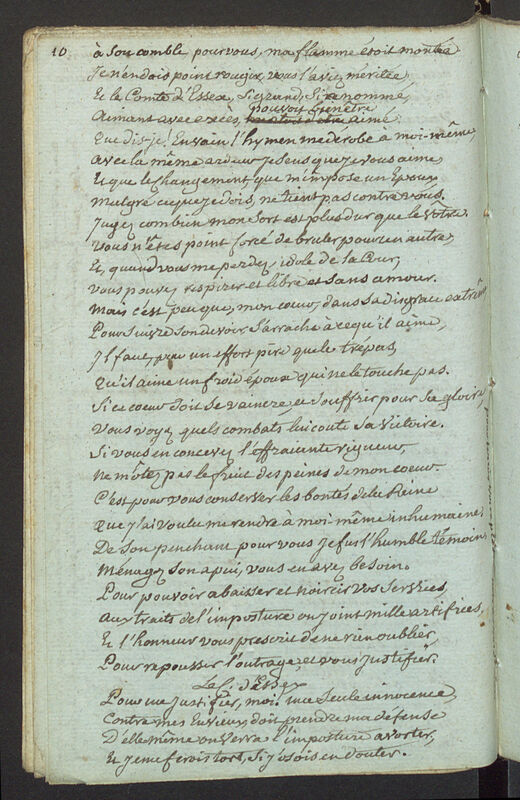 10
à son comble pour vous, ma flamme étoit montée
Je n'en dois point rougir, vous l'aviez méritée,
Et le Comte d'Essex, si grand, si renommé,
pouvoit bien être
Aimant avec excès, aimé.
Que dis-je. En vain l'hymen me dérobe à moi-même,
avec la même ardeur je sens que je vous aime,
Et que le changement, que m'impose un Epoux
malgré ce que je dois, ne tient pas contre vous.
Jugez combien mon sort est plus dur que le vôtre.
vous n'êtes point forcé de bruler pour un autre,
Et, quand vous me perdez, idole de la Cour,
vous pouvez respirer et libre et sans amour.
mais c'est peu que, mon coeur, dans sa disgrace extrême
Pour suivre son devoir s'arrache à ce qu'il aime,
Il faut, par un effort pire que le trépas,
Qu'il aime un froid époux qui ne le touche pas.
Si ce coeur doit se vaincre, et souffrir pour sa gloire
Vous voyez quels combats lui coute sa victoire.
Si vous en concevez l'effraiante rigueur,
ne m'ôtez pas le fruit des peines de mon coeur.
C'est pour vous conserver les bontés de la Reine
que j'ai voulu me rendre à moi-même inhumaine;
De son penchant pour vous je fus l'humble témoin,
Ménagez son apui, vous en avez besoin.
Pour pouvoir abaisser et noircir vos services,
Aux traits de l'imposture on joint mille artifices,
Et l'honneur vous prescrit de ne rien oublier,
Pour repousser l'outrage et vous justifier.
Le C. d'Essex
Pour me justifier, moi. ma seule innocence,
Contre mes Envieux, doit prendre ma défense
D'elle même on verra l'imposture avorter,
Et je me ferois tort, si j'osois en douter.